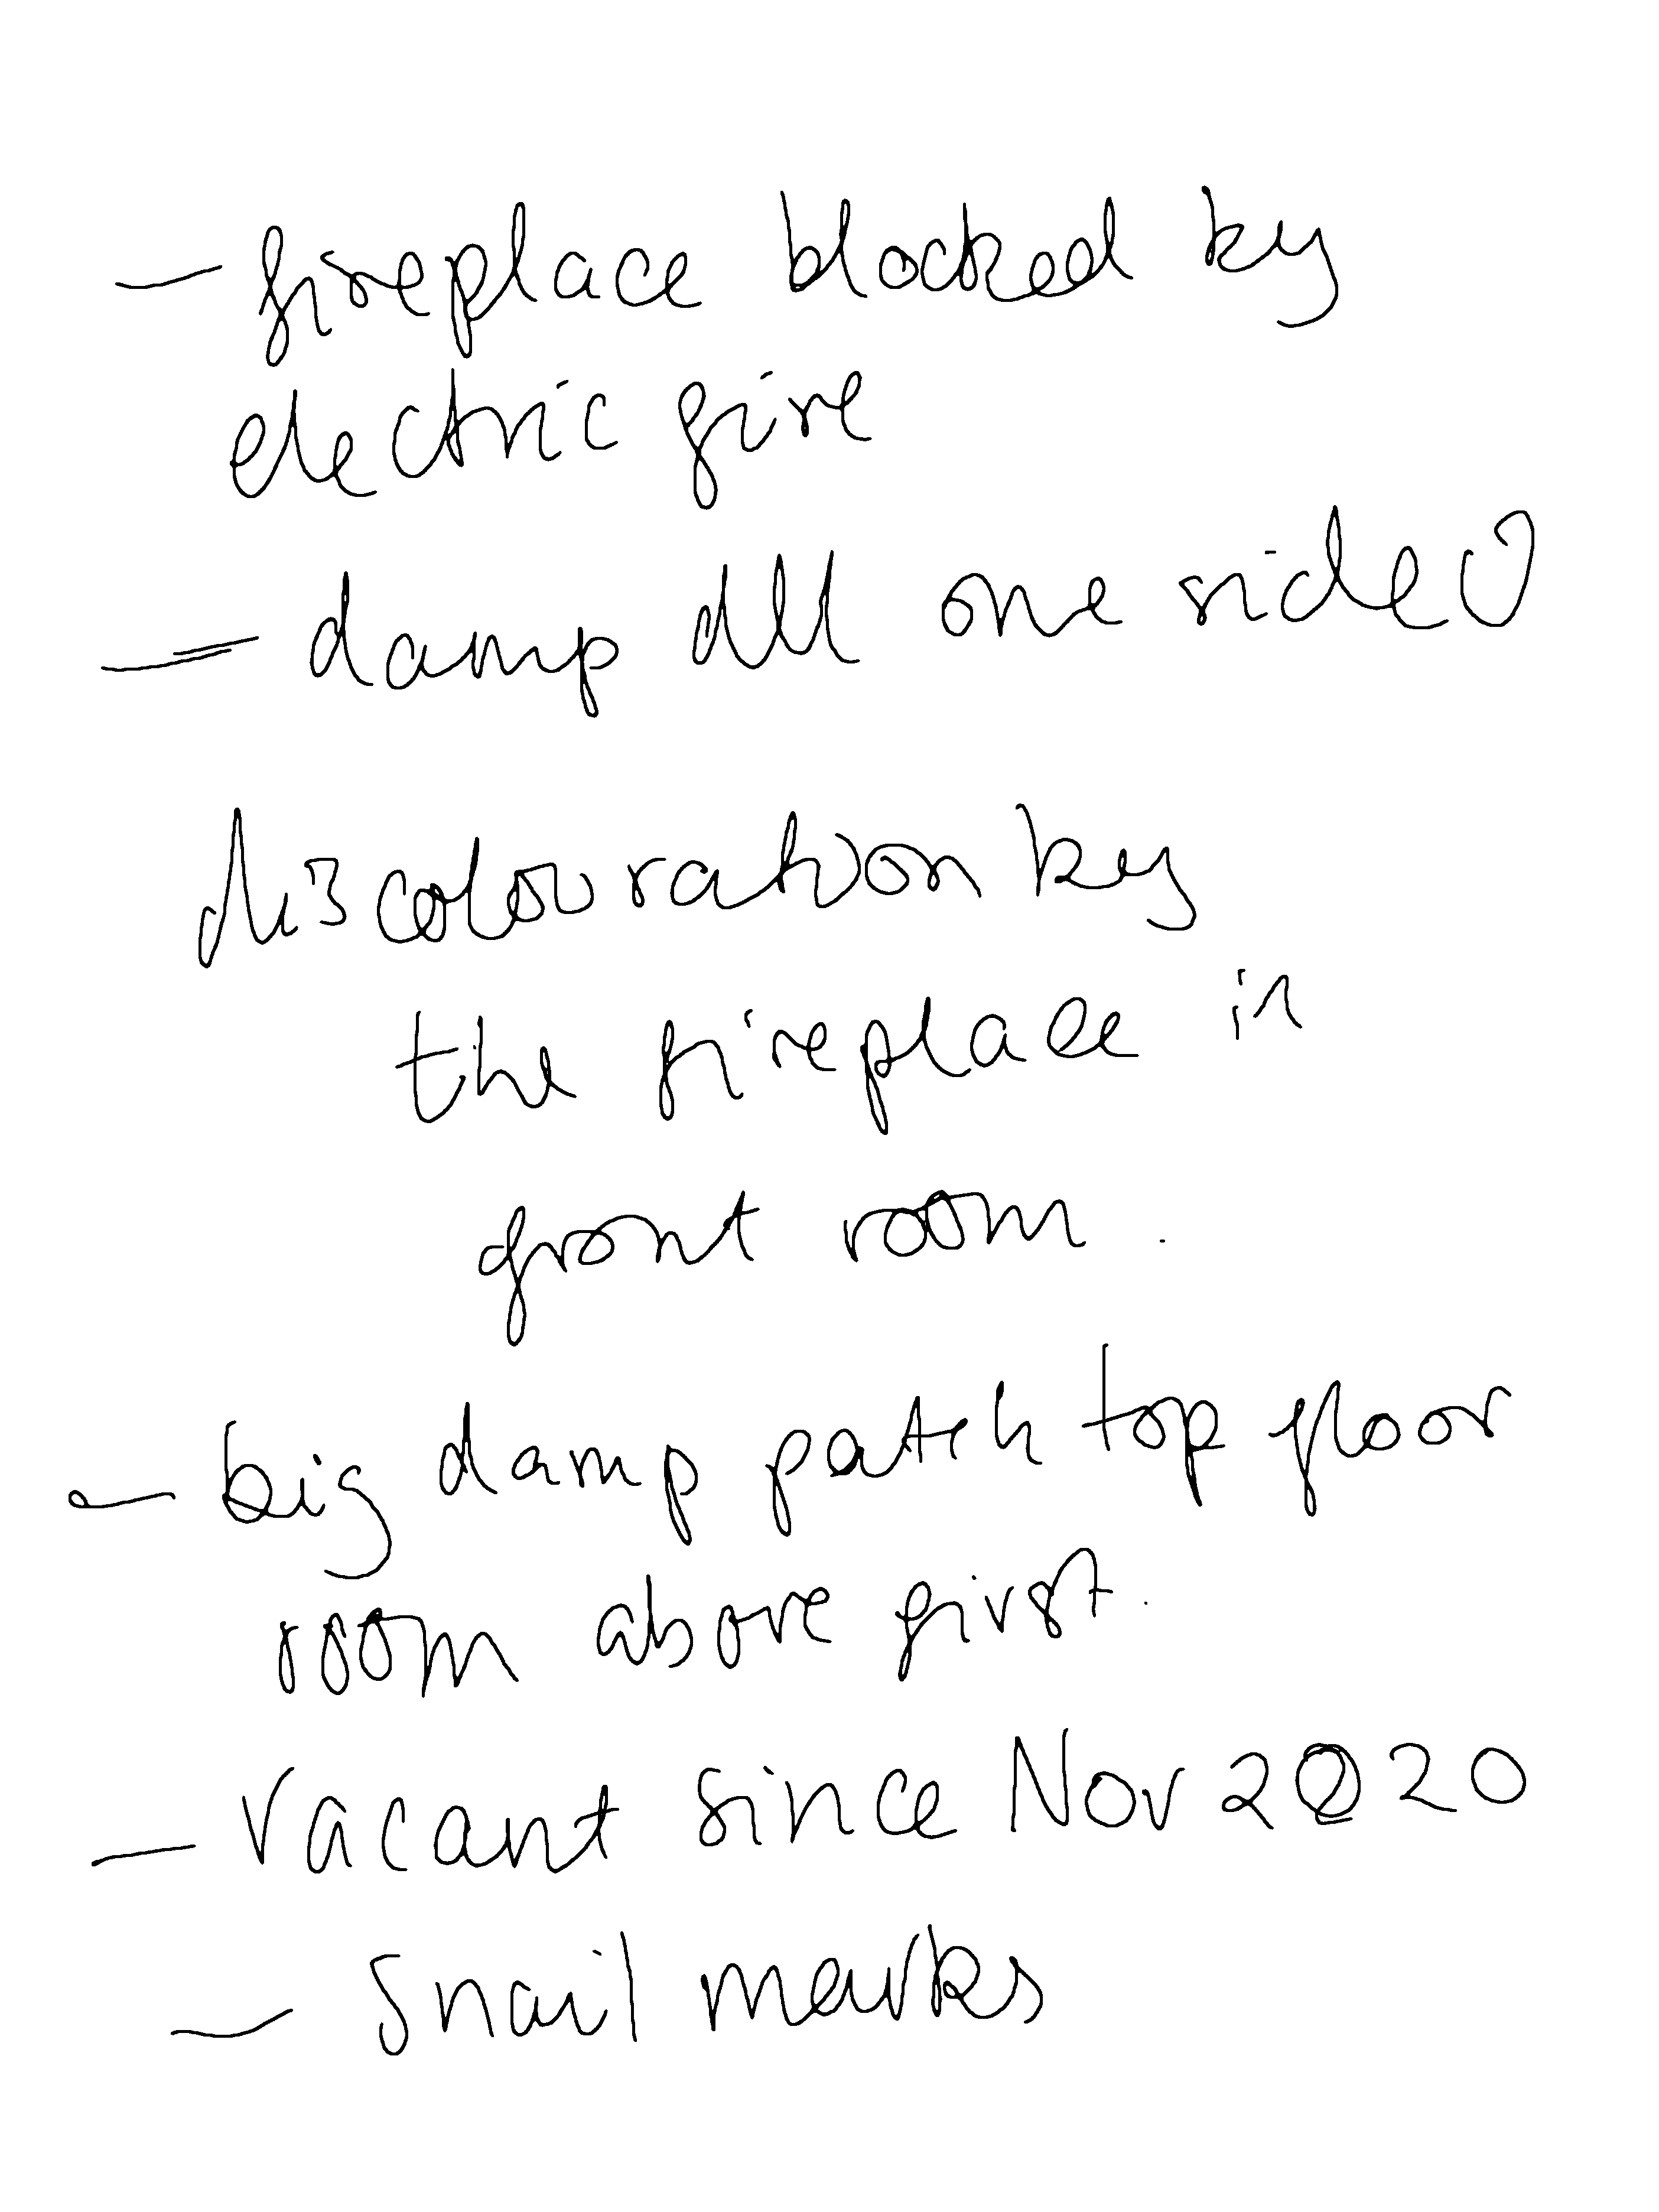 - fireplace blocked by
electric fire
- damp all one side
discolouration by
the fireplace in
front room.
- big damp patch top floor
room above first.
- Vacant since Nov 2020
- Snail marks